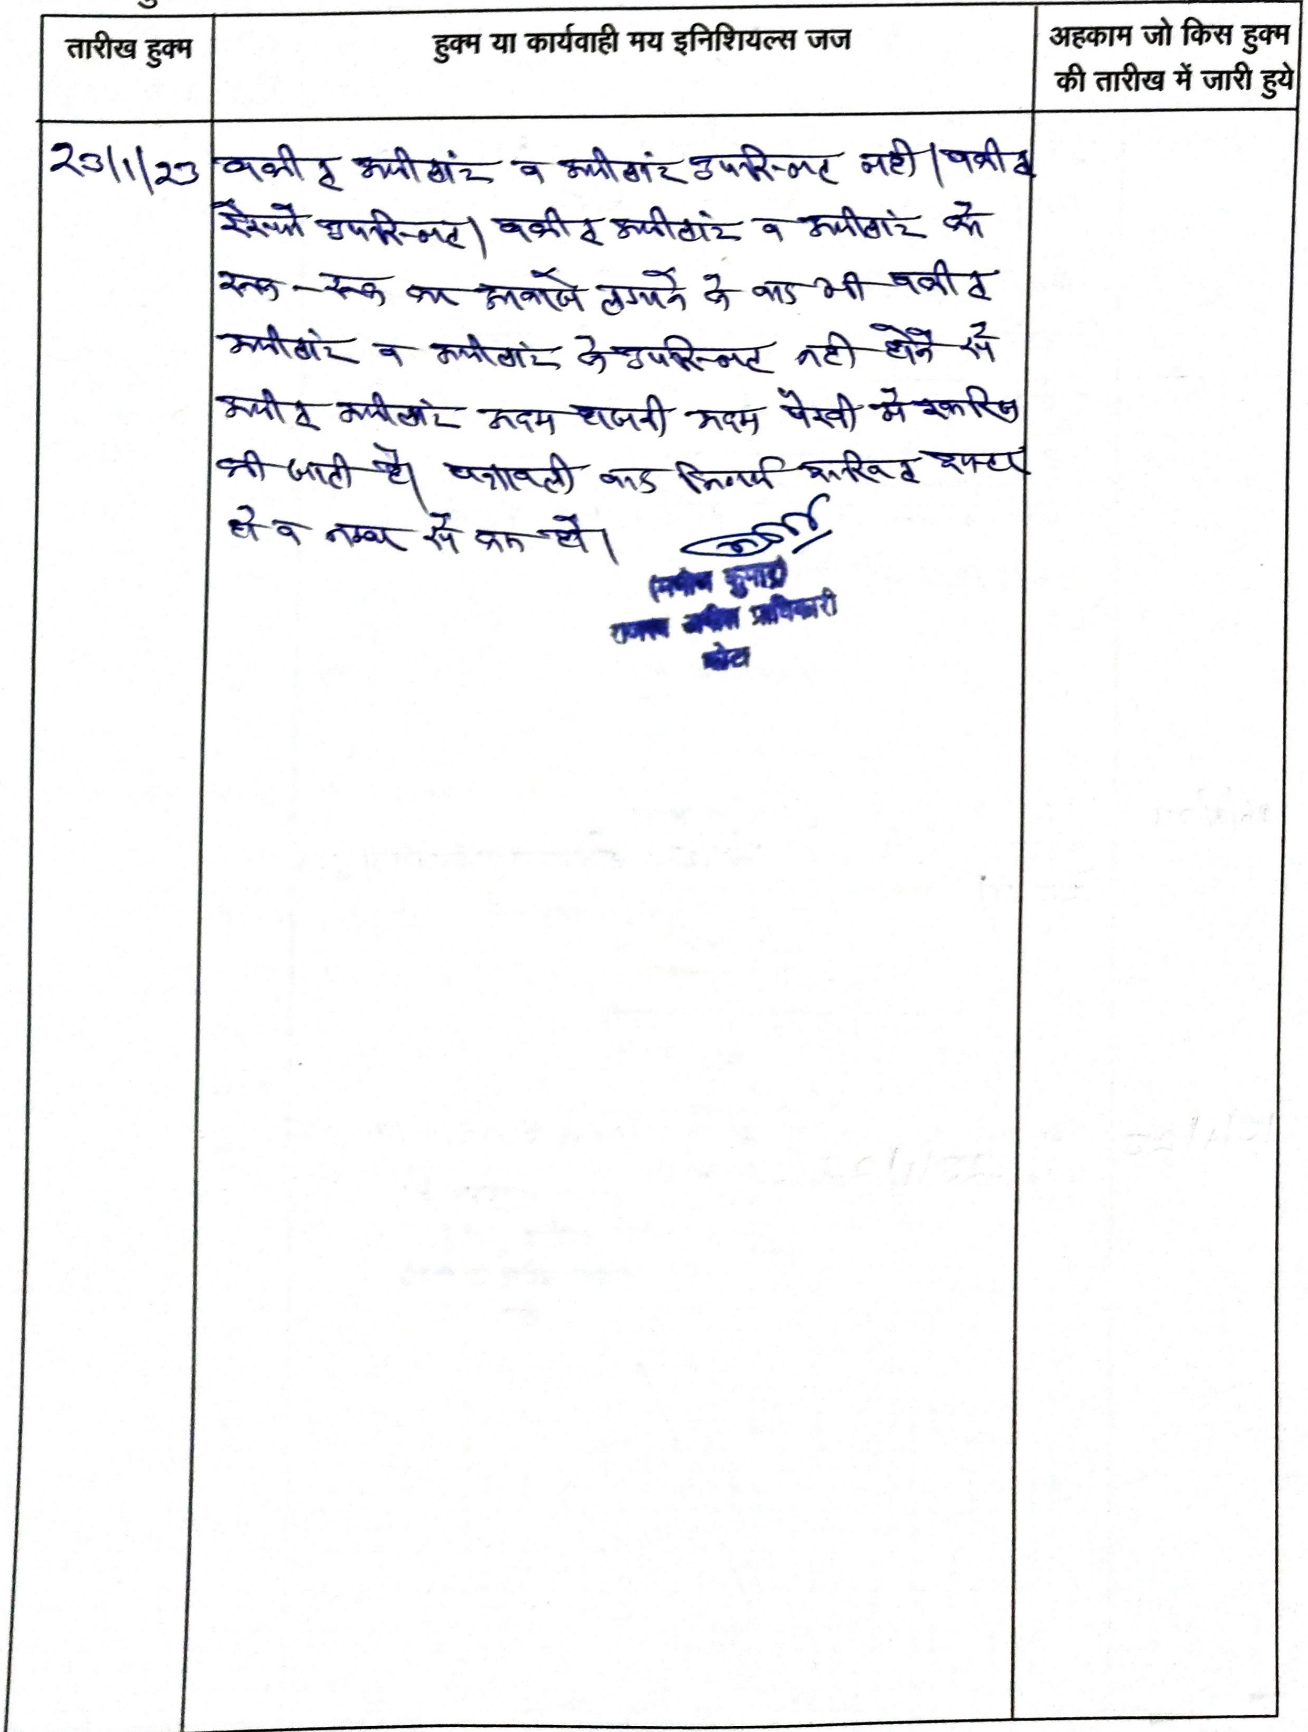 तारीख हुक्म
हुक्म या कार्यवाही मय इनिशियल्स जज
अहकाम जो किस हुक्म
की तारीख में जारी हुये
23/1/23
वकील अपीलांट व अपीलांट उपस्थित नही। वकील
रेस्पो उपस्थित। वकील अपीलांट व अपीलांट को
रूक-रूक कर आवाजे लगाने के बाद भी वकील
अपीलांट व अपीलांट के उपस्थित नही होने से
अपील अपीलांट अदम हाजरी अदम पैरवी मे खारिज
की जाती है। पत्रावली बाद निर्णय दाखिल दफ्तर
हो व नम्बर से कम हो।
(मनोज कुमार)
राजस्व अपील प्राधिकारी
कोटा